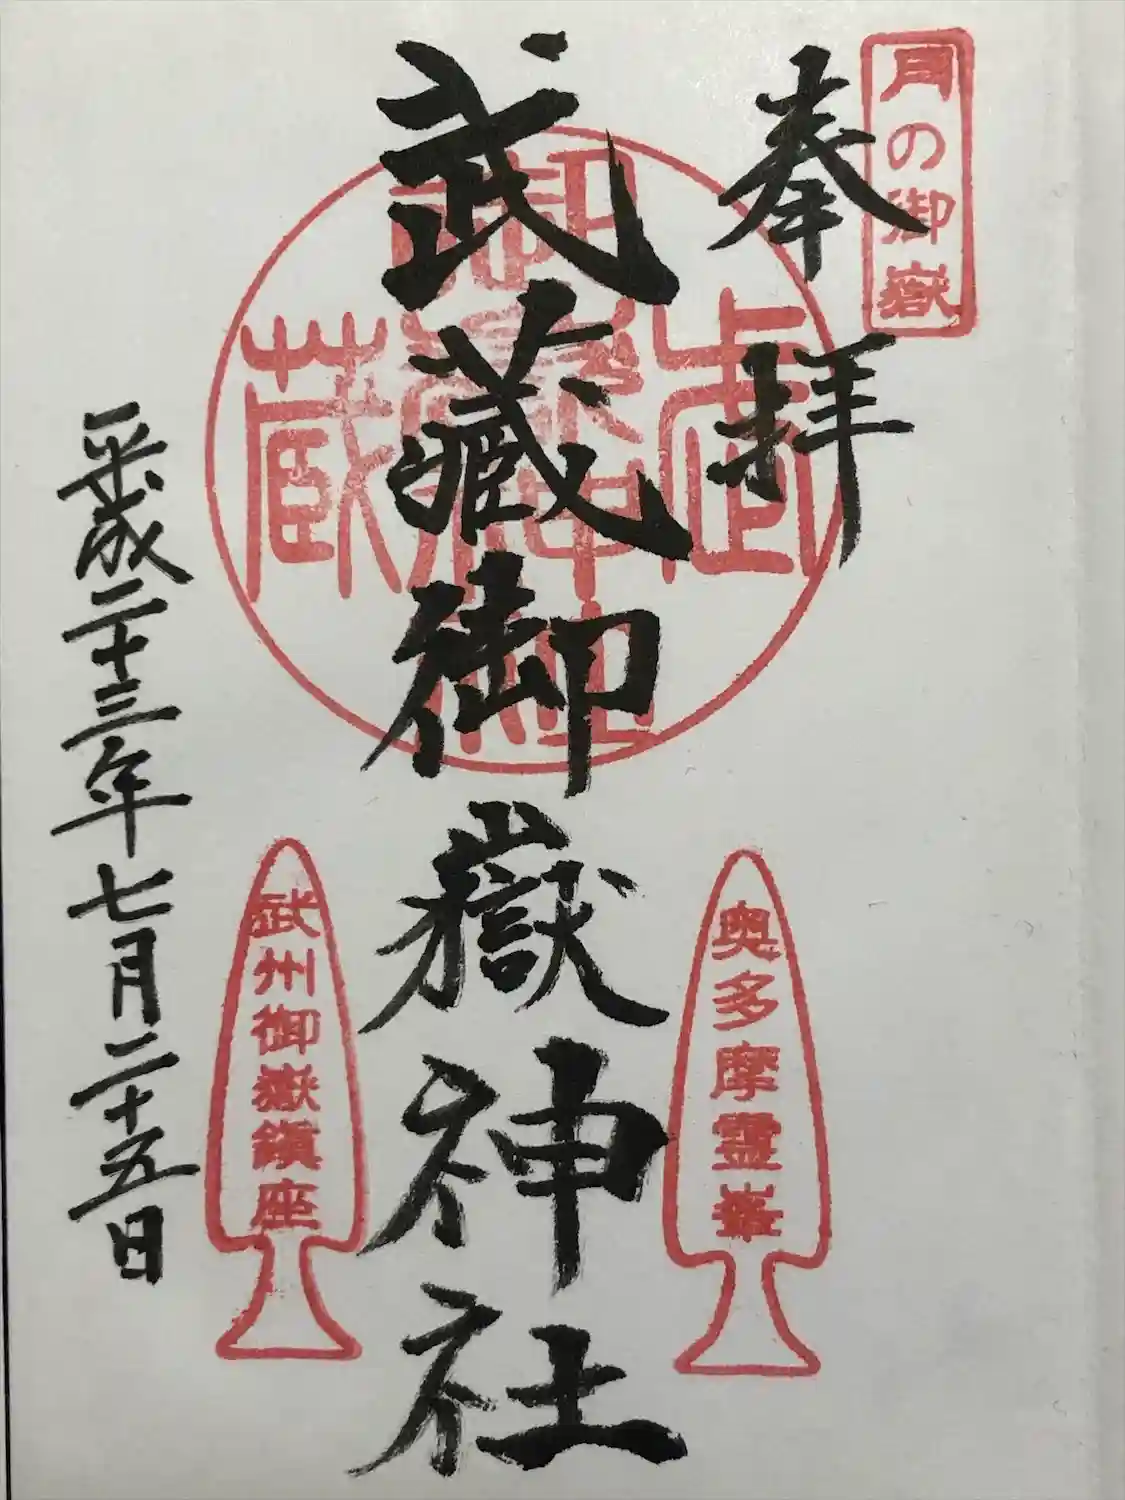 月の御嶽
奉拝
武蔵御嶽神社
武蔵
御嶽神社
奥多摩霊峯
武州御嶽鎮座
平成二十三年七月二十五日